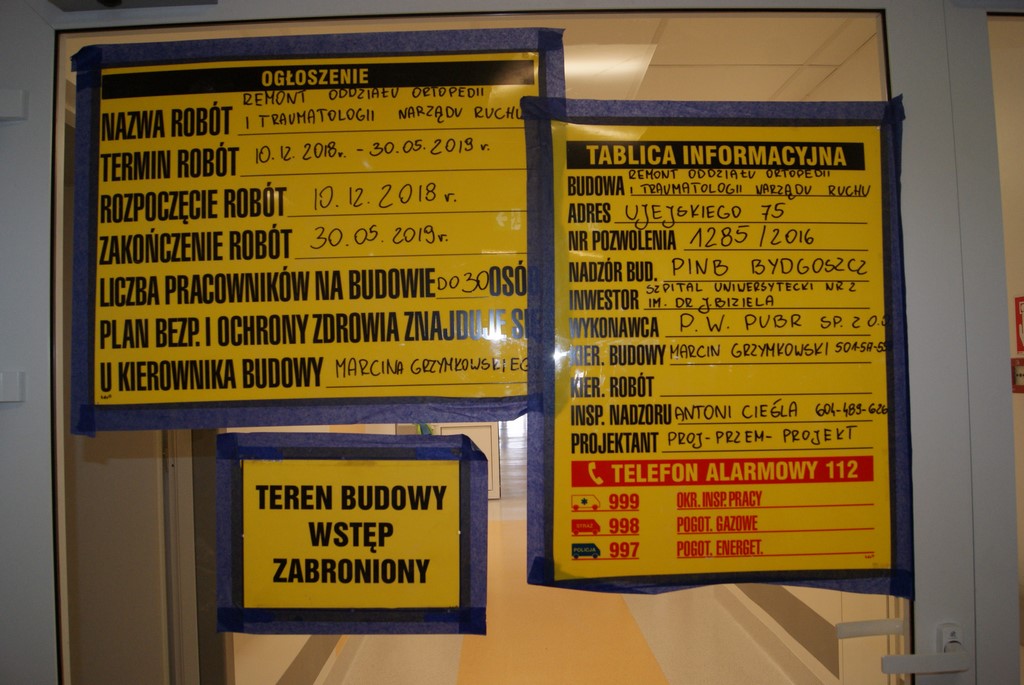 OGŁOSZENIE
NAZWA ROBÓT REMONT ODDZIAŁU ORTOPEDII
I TRAUMATOLOGII NARZĄDU RUCHU
TERMIN ROBÓT 10.12.2018r. - 30.05.2019 r.
ROZPOCZĘCIE ROBÓT 10.12.2018 r.
ZAKOŃCZENIE ROBÓT 30.05.2019r.
LICZBA PRACOWNIKÓW NA BUDOWIE DO 30 OSÓB
PLAN BEZP. I OCHRONY ZDROWIA ZNAJDUJE SIĘ
U KIEROWNIKA BUDOWY MARCINA GRZYMKOWSKIEG
TEREN BUDOWY
WSTĘP
ZABRONIONY
TABLICA INFORMACYJNA
BUDOWA REMONT ODDZIAŁU ORTOPEDII
I TRAUMATOLOGII NARZĄDU RUCHU
ADRES UJEJSKIEGO 75
NR POZWOLENIA 1285/2016
NADZÓR BUD. PINB BYDGOSZCZ
INWESTOR SZPITAL UNIWERSYTECKI NR 2
IM. DR J.BIZIELA
WYKONAWCA P.W. PUBR SP. Z O.O
KIER. BUDOWY MARCIN GRZYMKOWSKI
KIER. ROBÓT
INSP. NADZORU ANTONI CIEŚLA 604-489-626
PROJEKTANT PROJ-PRZEM-PROJEKT
TELEFON ALARMOWY 112
999 OKR. INSP. PRACY
STRAŻ 998 POGOT. GAZOWE
POLICJA 997 POGOT. ENERGET.